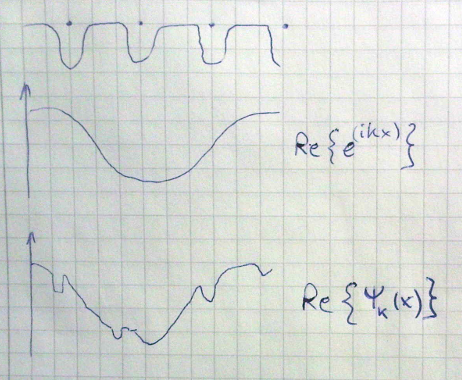 Re{e^(ikx)}
Re{Ψ_k(x)}